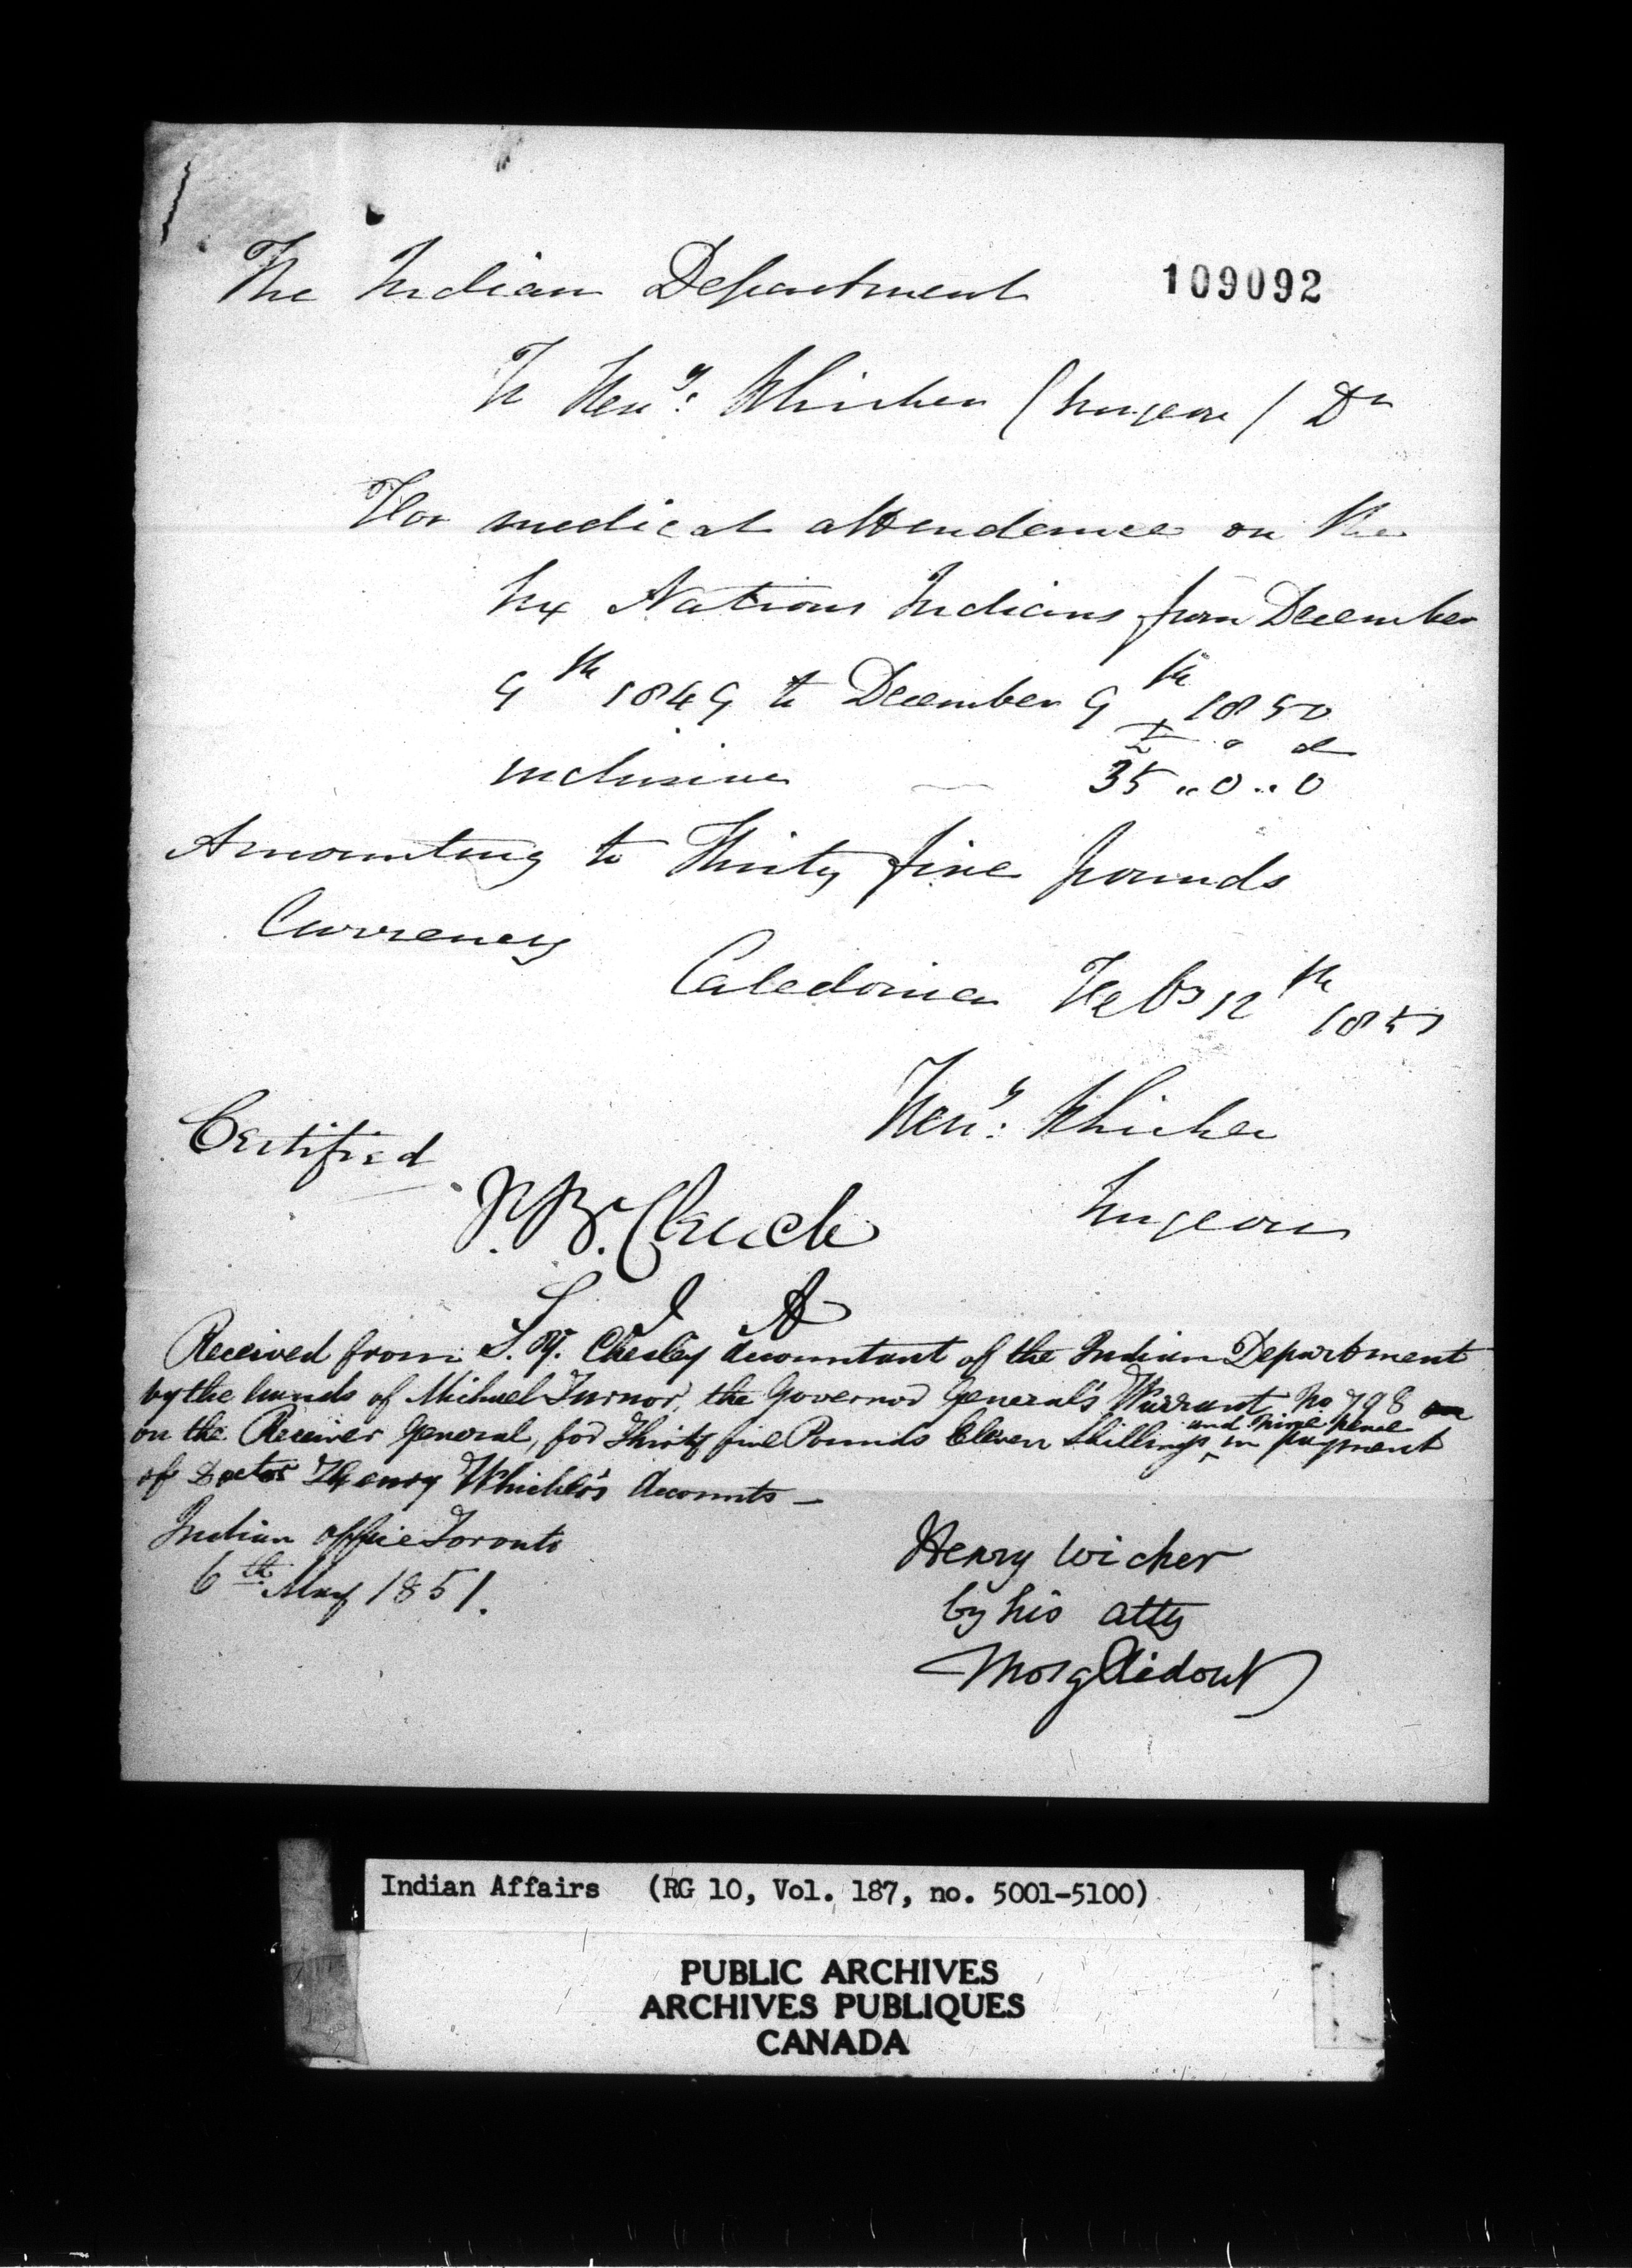 The Indian Department 109092
To Heny: Whicher (Surgeon) Dr
For medical attendance on the
Six Nations Indians from December
9th 1849 to December 9th 1850
£ s d
inclusive — 35 „ 0 „ 0
Amounting to Thirty five pounds
Currency
Caledonia Feby 12th 1851
Heny: Whicher
Surgeon
Certified
S I A
Received from S. Y. Chesley Accountant of the Indian Department
by the hands of Michael Turnor, the Governor General's Warrant No 798
and nine pence
on the Receiver General, for Thirty five Pounds Eleven Shillings ‸ in payment
of Doctor Henry Whicher's Accounts —
Indian Office Toronto
6th May 1851.
Henry Wicher
by his atty
Indian Affairs (RG 10, Vol. 187, no. 5001-5100)
PUBLIC ARCHIVES
ARCHIVES PUBLIQUES
CANADA